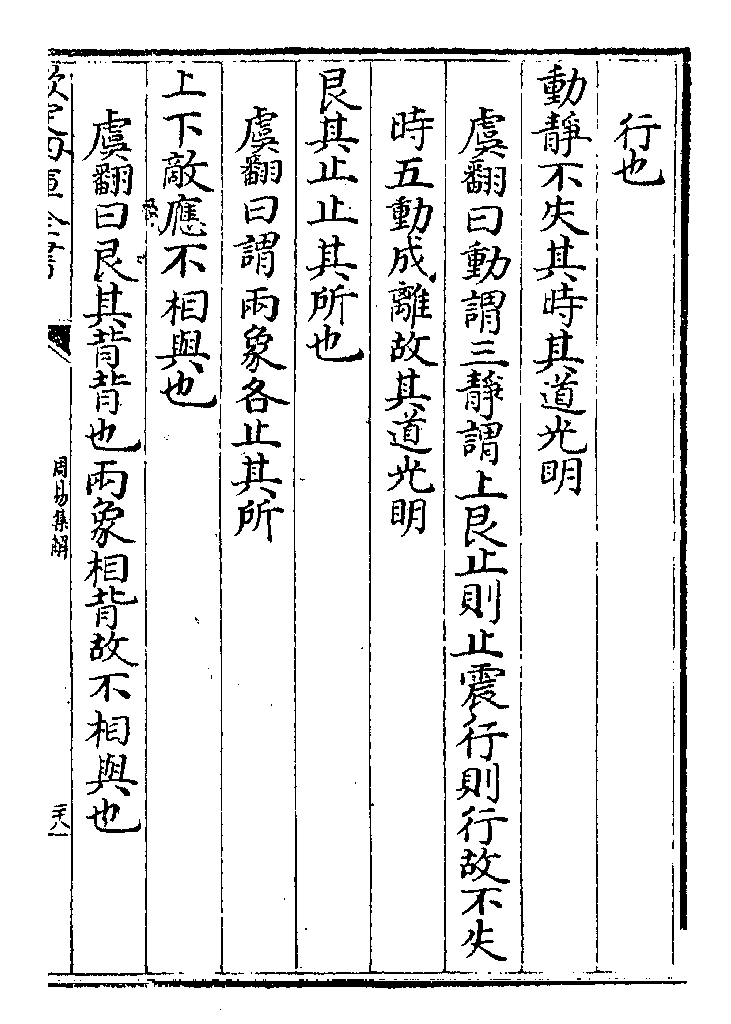 行也
動靜不失其時其道光明
虞翻曰動謂三靜謂上艮止則止震行則行故不失
時五動成離故其道光明
艮其止止其所也
虞翻曰謂兩象各止其所
上下敵應不相與也
虞翻曰艮其背背也兩象相背故不相與也
欽定四庫全書
周易集解
二十八